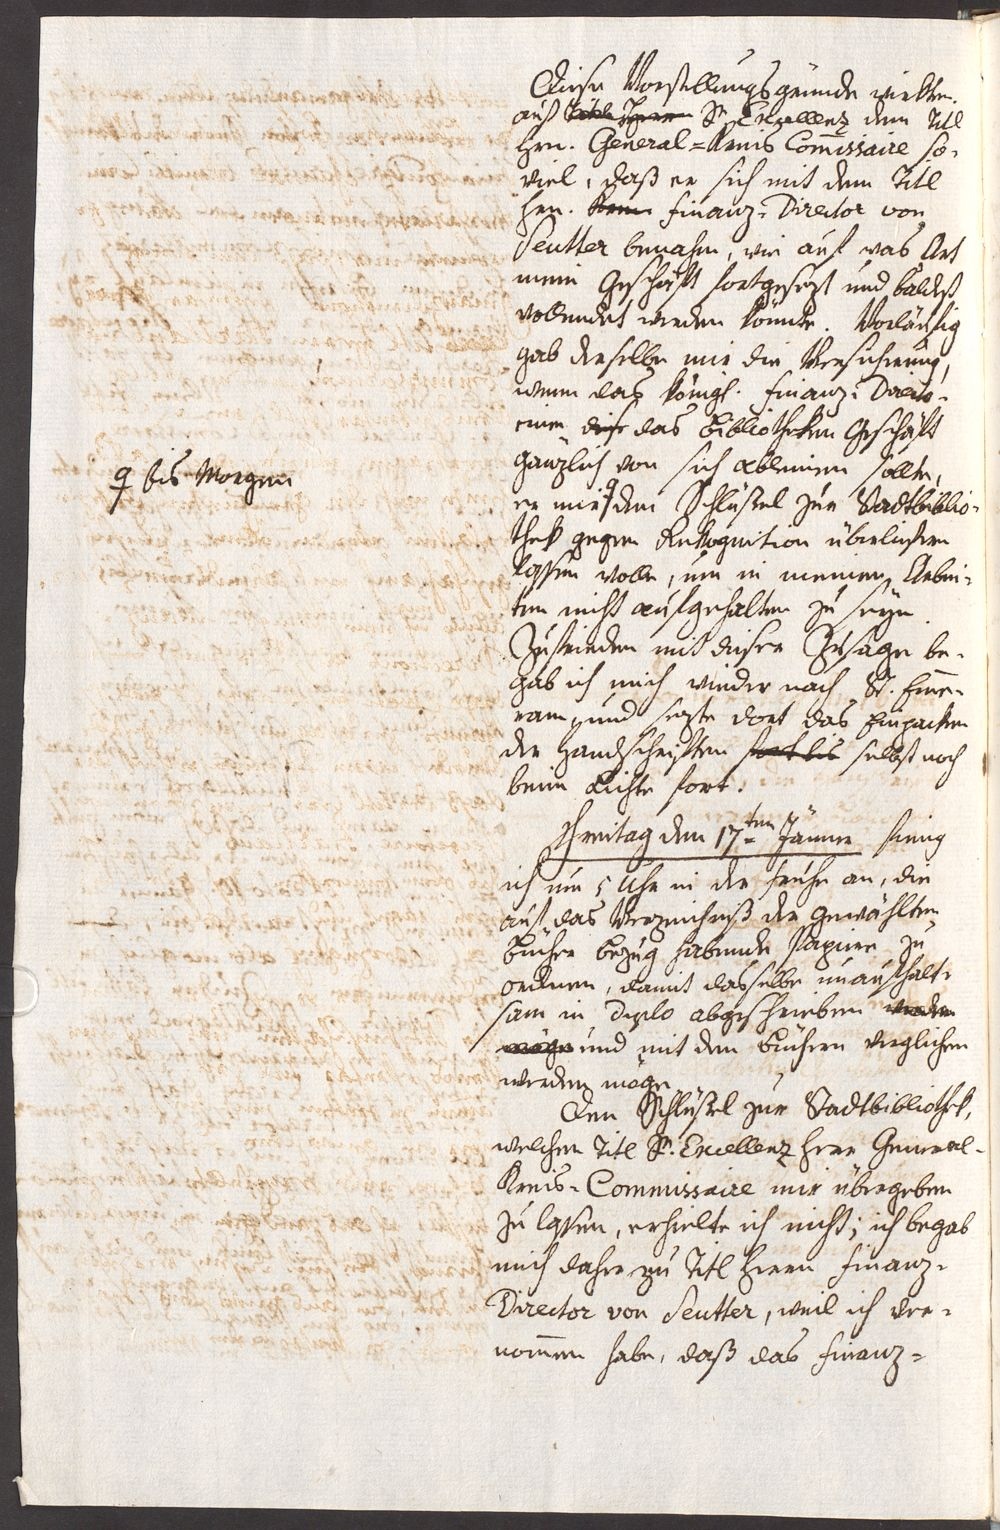 Diese Vorstellungsgründe wirkten
auf Titl Herrn Sr. Excellenz dem Titl
Hrn. General-Kreis Commissaire so-
viel, daß er sich mit dem Titl
Hrn. Finanz-Director von
Seutter benahm, wie auf was Art
mein Geschäft fortgesezt und baldest
vollendet werden könnte. Vorläufig
gab derselbe mir die Versicherung,
wenn das königl. Finanz-Directo-
rium dies das Bibliotheken Geschäft
gänzlich von sich ableinen sollte,
er mir den Schlüßel zur Stadtbiblio-
thek gegen Rekognition überliefern
lassen wolle, um in meinen Arbei-
ten nicht aufgehalten zu seyn.
Zufrieden mit dieser Zusage be-
gab ich mich wieder nach St. Emme-
ram, und sezte dort das Einpacken
der Handschriften fort bis selbst noch
beim Lichte fort.
Freitag den 17ten Jänner fieng
ich um 5 Uhr in der Frühe an, die
auf das Verzeichniß der gewählten
Bücher bezug habende Papiere zu
ordnen, damit dasselbe unaufhalt-
sam in duplo abgeschrieben werden
möge und mit den Büchern verglichen
werden möge
Den Schlüßel zur Stadtbibliothek,
welchen Titl Sr. Excellenz Herr General-
Kreis-Commissaire mir übergeben
zu lassen, erhielte ich nicht; ich begab
mich daher zu Titl Herrn Finanz-
Director von Seutter, weil ich ver-
nommen habe, daß das Finanz-
bis Morgen